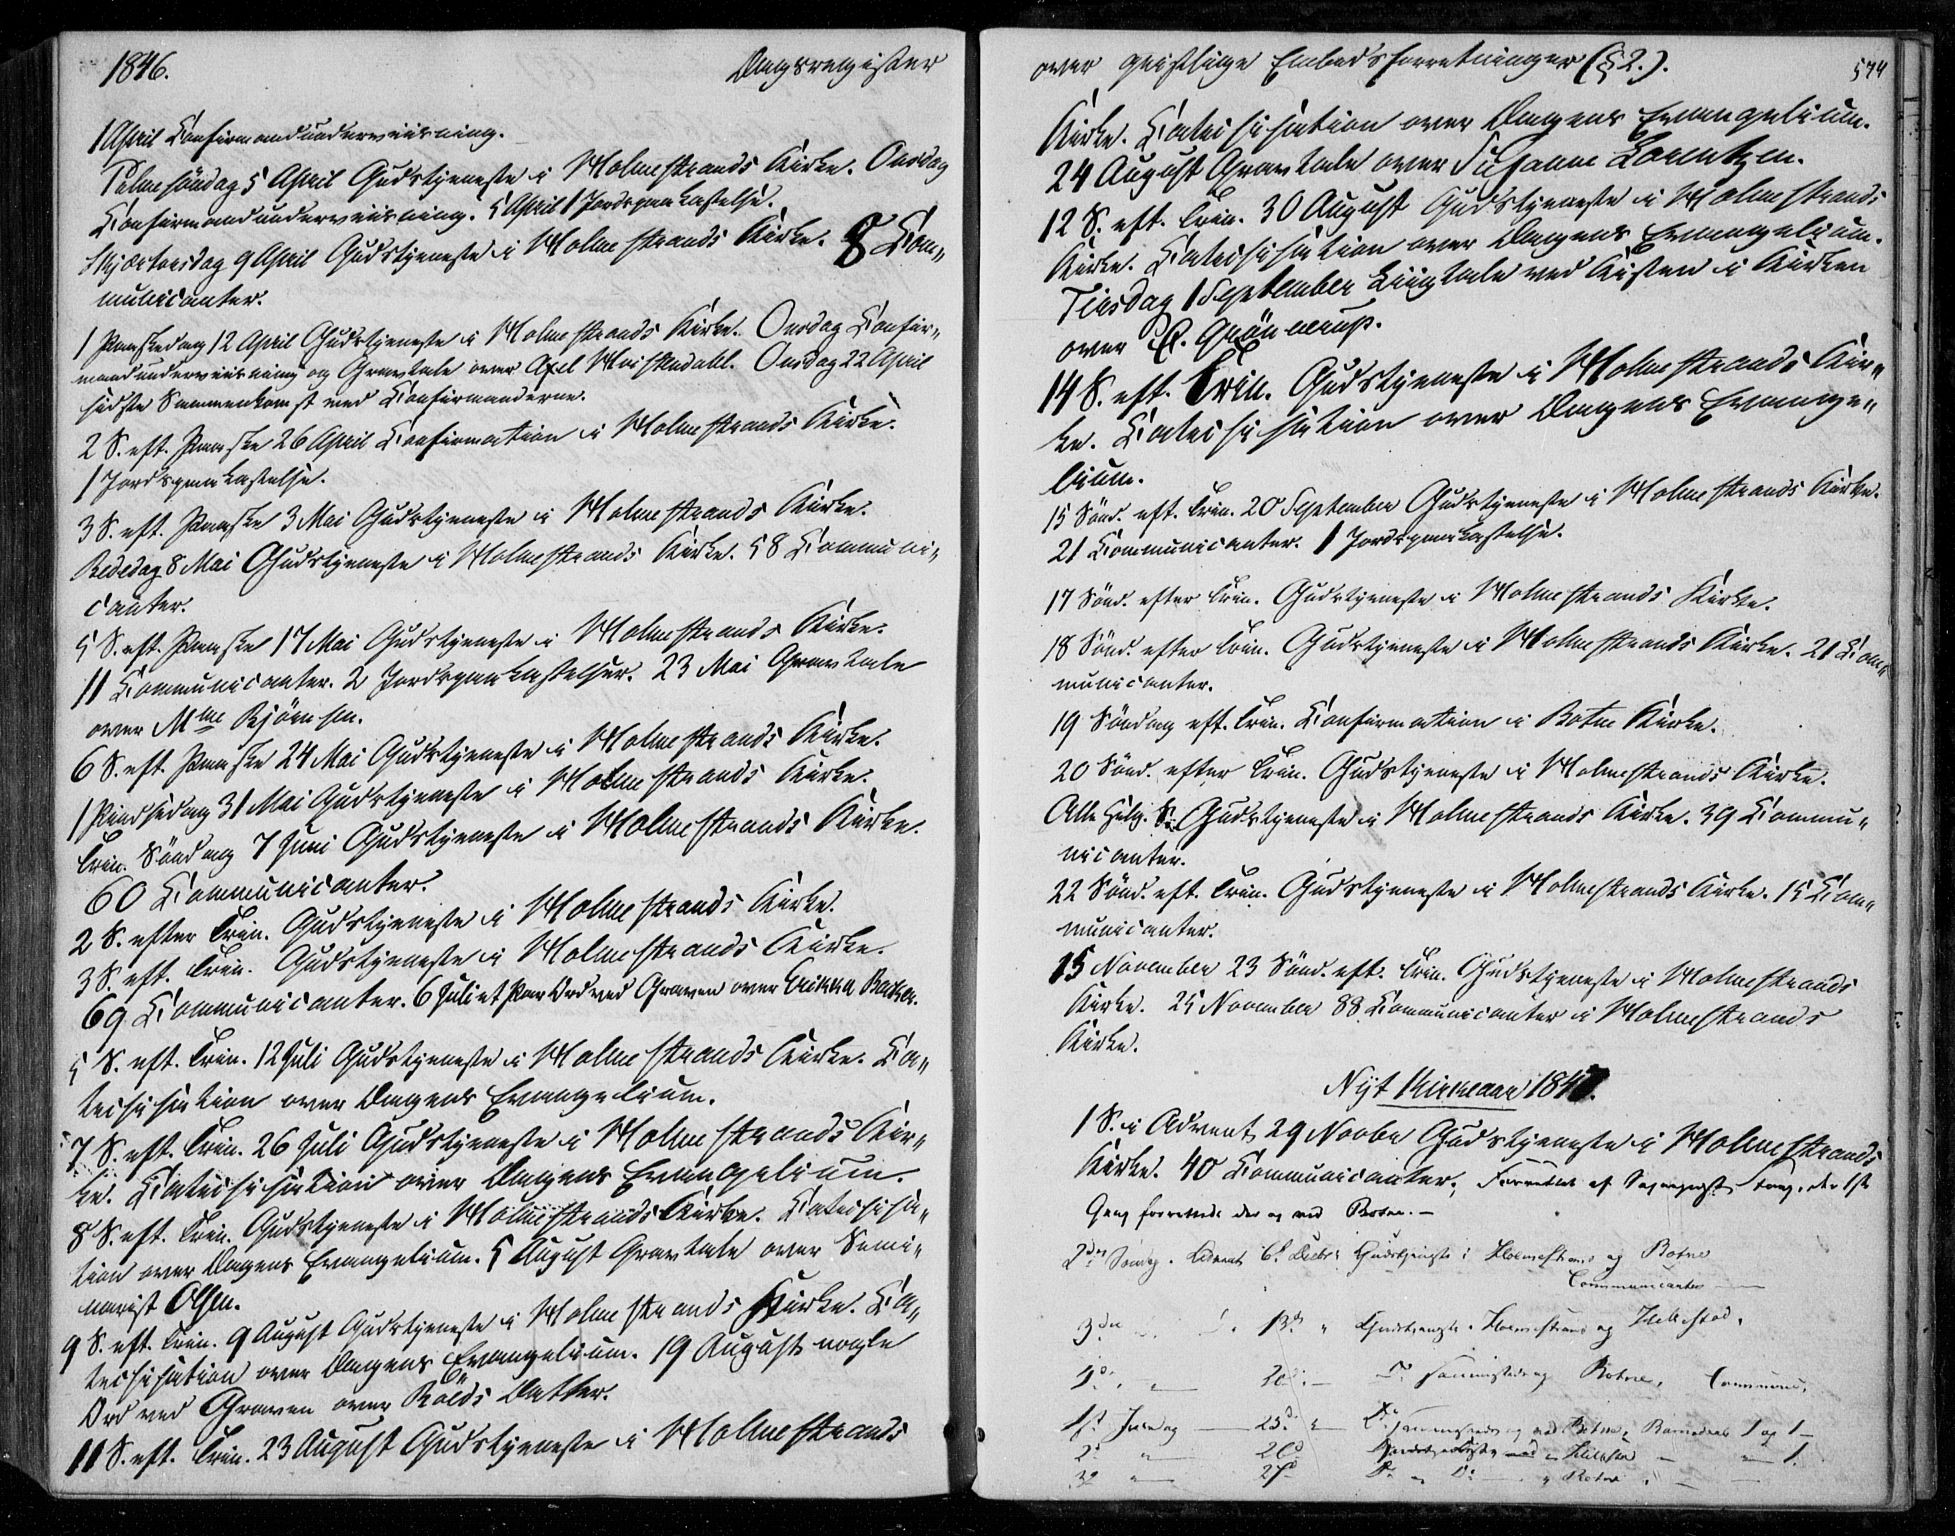 1846.
Dagsregister
1 April Confirmandunderviisning.
Palmesöndag 5 April Gudstjeneste i Holmestrands Kirke. Onsdag
Confirmandunderviisning. 5 April 1 Jordspaakastelse.
Skjærtorsdag 9 April Gudstjeneste i Holmestrands Kirke. 8 Com„
municanter.
1 Paaskedag 12 April Gudstjeneste i Holmestrands Kirke. Onsdag Confir„
mandunderviisning og Gravtale over Axel. Onsdag 22 April
sidste Sammenkomst med Confirmanderne.
2 S. eft. Paaske 26 April Confirmation i Holmestrands Kirke.
1 Jordspaakastelse.
3 S. eft. Paaske 3 Mai Gudstjeneste i Holmestrands Kirke.
Bededag 8 Mai Gudstjeneste i Holmestrands Kirke. 58 Communi„
canter.
5 S. eft. Paaske 17 Mai Gudstjeneste i Holmestrands Kirke.
11 Communicanter. 2 Jordspaakastelser. 23 Mai Gravtale
over Mme Björnsen.
6 S. eft. Paaske 24 Mai Gudstjeneste i Holmestrands Kirke.
1 Pindsedag 31 Mai Gudstjeneste i Holmestrands Kirke.
Trin. Söndag 7 Juni Gudstjeneste i Holmestrands Kirke.
60 Communicanter.
2 S. efter Trin. Gudstjeneste i Holmestrands Kirke.
3 S. eft. Trin. Gudstjeneste i Holmestrands Kirke.
69 Communicanter. 6 Juli et Par Ord ved Graven over
5 S. eft. Trin. 12 Juli Gudstjeneste i Holmestrands Kirke. Ca„
techisation over Dagens Evangelium.
7 S. eft. Trin. 26 Juli Gudstjeneste i Holmestrands Kir„
ke. Catechisation over Dagens Evangelium.
8 S. eft. Trin. Gudstjeneste i Holmestrands Kirke. Catechisa„
tion over Dagens Evangelium. 5 August Gravtale over Semi„
narist Olsen.
9 S. eft. Trin. 9 August Gudstjeneste i Holmestrands Kirke. Ca„
techisation over Dagens Evangelium. 19 August nogle
Ord ved Graven over Röeds Datter.
11 S. eft. Trin. 23 August Gudstjeneste i Holmestrands
over geistlige Embedsforretninger (§ 2.).
574
Kirke. Catechisation over Dagens Evangelium.
24 August Gravtale over Susanne Lorentzen.
12 S. eft. Trin. 30 August Gudstjeneste i Holmestrands
Kirke. Catechisation over Dagens Evangelium.
Tirsdag 1 September Liigtale ved Kisten i Kirken
over P. Grönnerup.
14 S. eft. Trin. Gudstjeneste i Holmestrands Kir„
ke. Catechisation over Dagens Evange„
lium.
15 Sönd. eft. Trin. 20 September Gudstjeneste i Holmestrands Kirke.
21 Communicanter. 1 Jordspaakastelse.
17 Sönd. efter Trin. Gudstjeneste i Holmestrands Kirke.
18 Sönd. efter Trin. Gudstjeneste i Holmestrands Kirke. 21 Com„
municanter.
19 Söndag eft. Trin. Confirmation i Botne Kirke.
20 Sönd. efter Trin. Gudstjeneste i Holmestrands Kirke.
Alle Helg. S. Gudstjeneste i Holmestrands Kirke. 39 Commu„
nicanter.
22 Sönd. eft. Trin. Gudstjeneste i Holmestrands Kirke. 15 Com„
municanter.
15 November 23 Sönd. eft. Trin. Gudstjeneste i Holmestrands
Kirke. 25 November 88 Communicanter i Holmestrands
Kirke.
Nyt Kirkeaar 1847.
1 S. i Advent 29 Novbr Gudstjeneste i Holmestrands
Kirke. 40 Communicanter. Forrettet af Sogneprest, der 1ste
Gang forrettede der og ved Botne. —
2den Söndag Advent 6te Decbr Gudstjeneste i Holmestrand og Botne
Communicanter —
3die " 13de " Gudstjeneste Holmestrand og Hillestad.
4de " — 20de — Do sammesteds og Botne,
1ste Juledag — 25de — Do sammesteds og ved Botne, Barnedaab 1 og 1 —
2den " — 26de Gudstjeneste ved Hillestad — 1.
3die " — 27de Do — " Botne